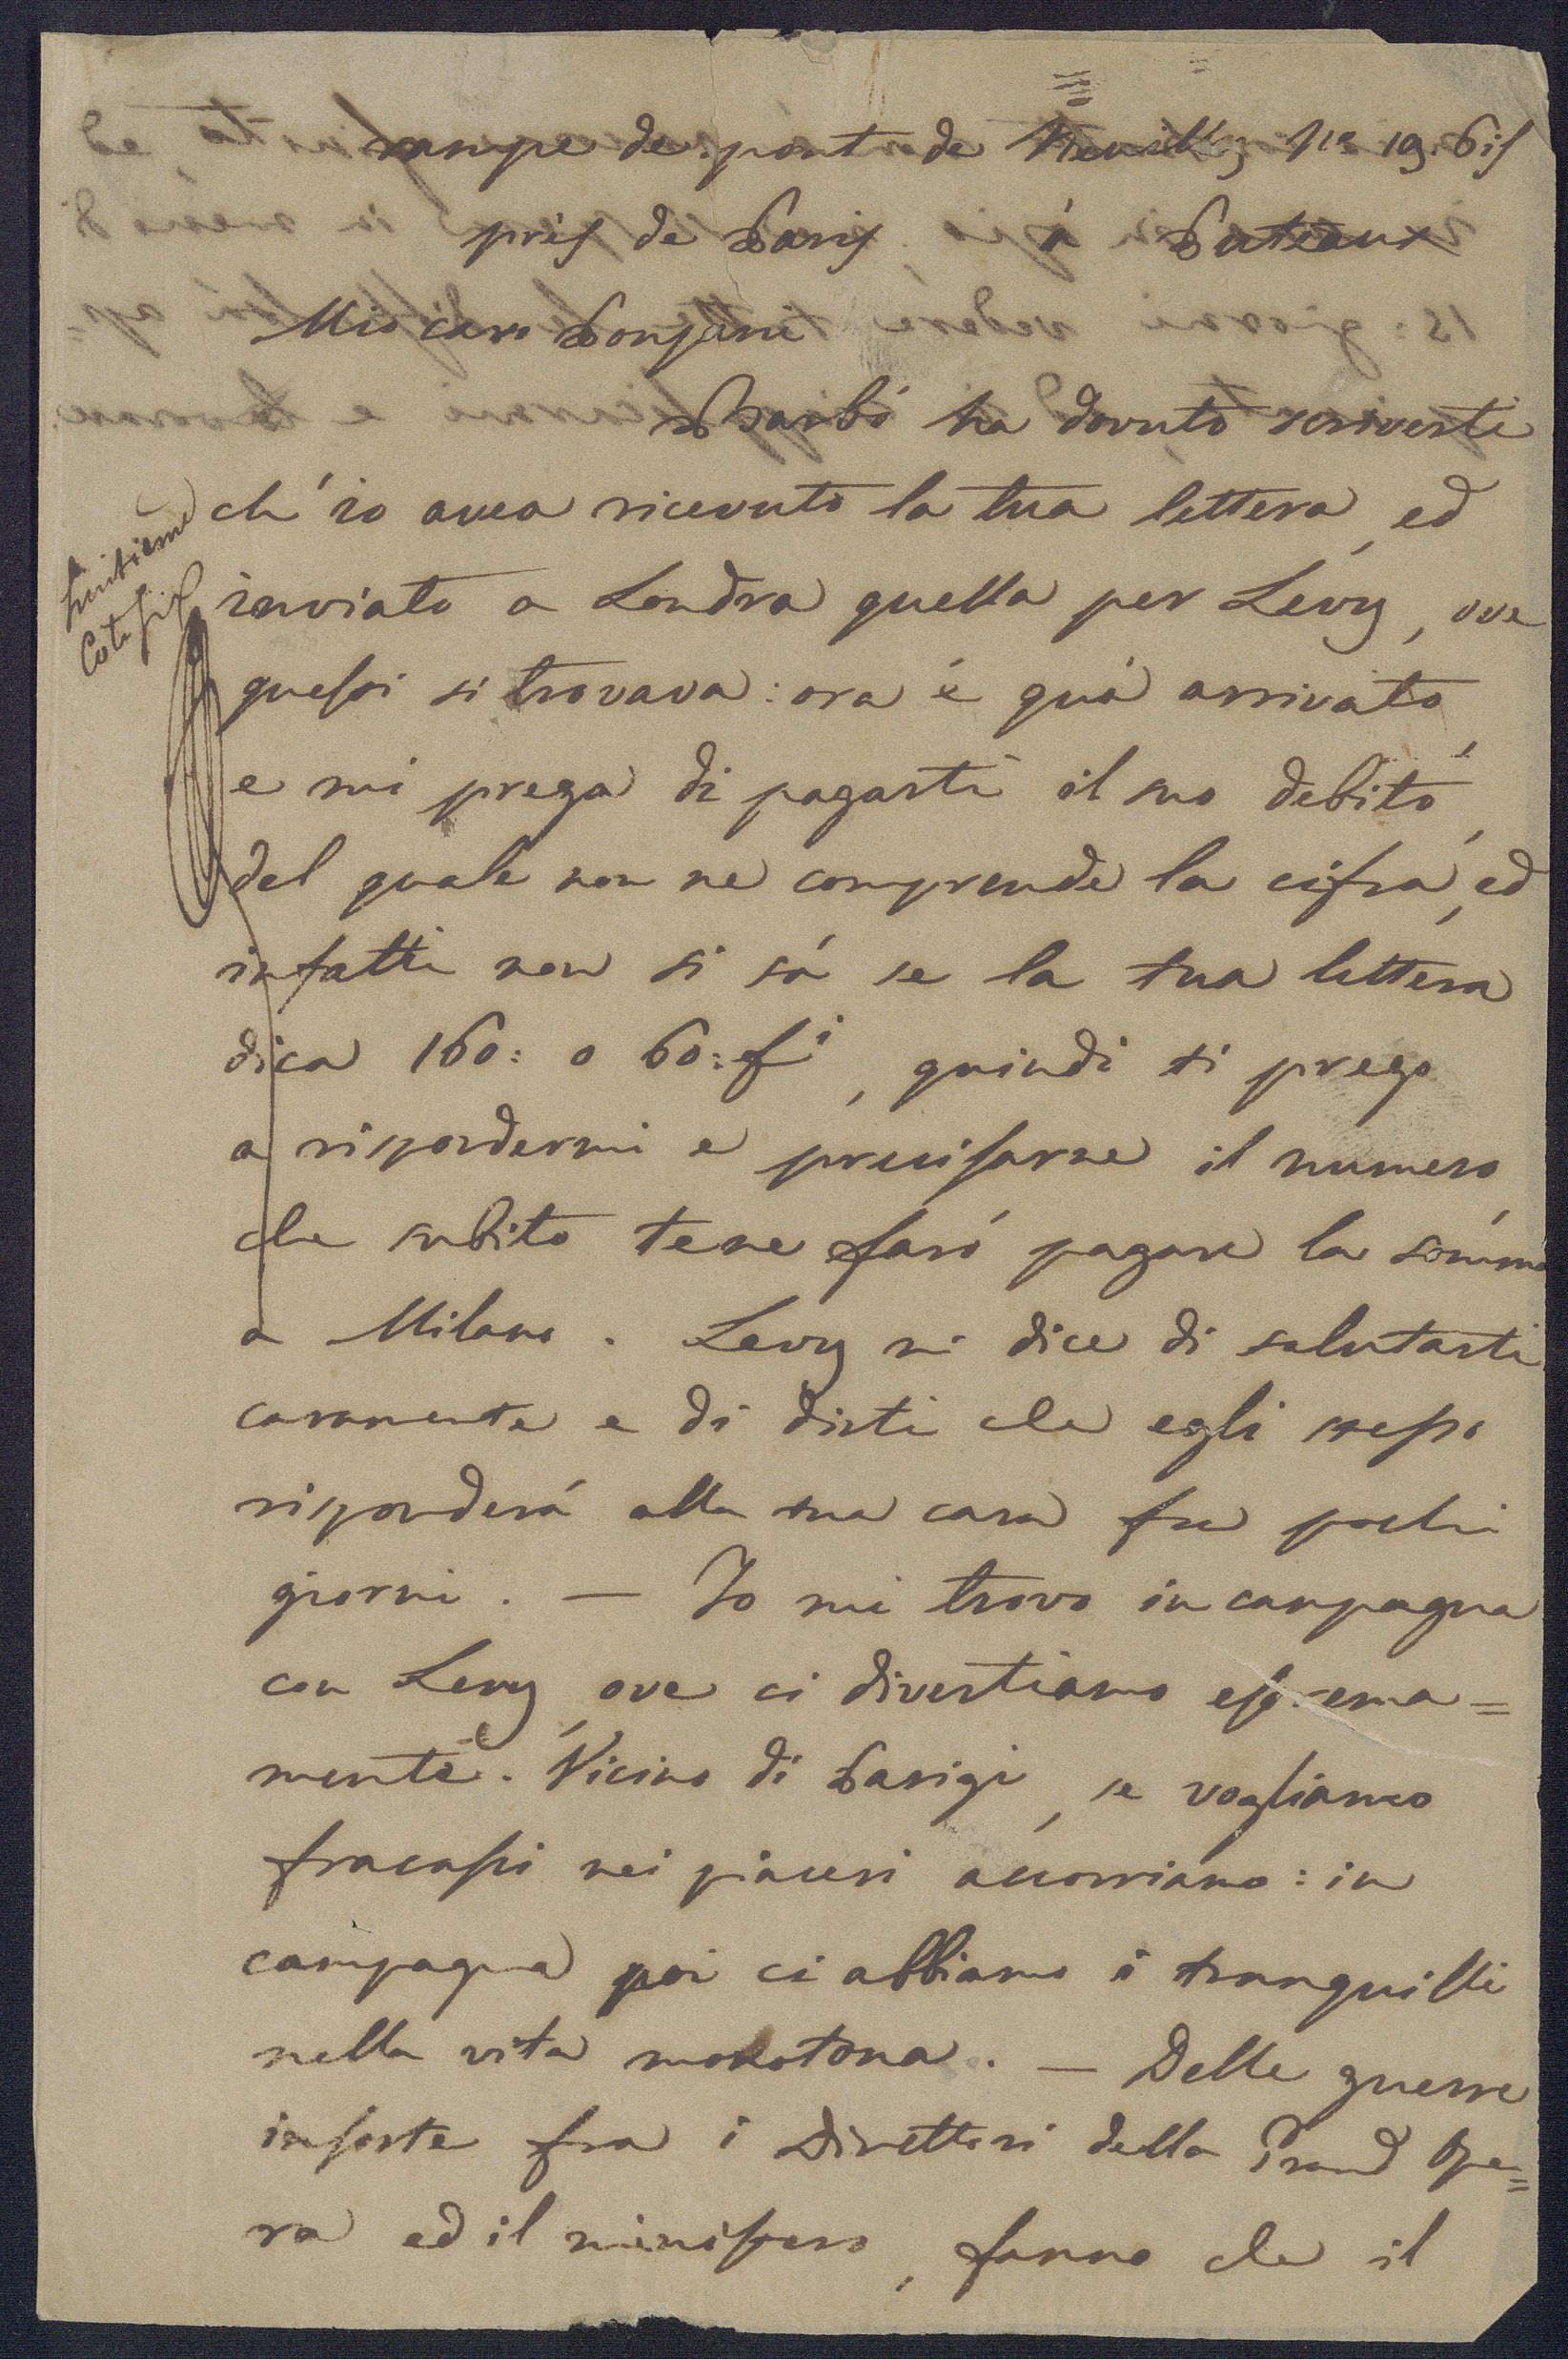 rampe de pont de Neuilly No 19. bis
près de Paris à Puteaux
Mio caro Bonsani
Barbò ha dovuto scriverti
ch'io avea ricevuto la tua lettera, ed
inviato a Londra quella per Levy, ove
questi si trovava: ora é quà arrivato,
e mi prega di pagarti il suo debito,
del quale non ne comprende la cifra, ed
infatti non si sá se la tua lettera
dica 160: o 60: fi, quindi ti prego
a rispondermi e precisarne il numero
che subito tene faró pagare la somma
a Milano. Levy mi dice di salutarti
caramente e di dirti che egli stesso
risponderá alla tua cara fra pochi
giorni. — Io mi trovo in campagna
con Levy, ove ci divertiamo estrema=
mente. Vicino di Parigi, se vogliamo
fracassi nei piaceri accorriamo: in
campagna poi ci abbiamo i tranquilli
nella vita monotona. — Delle guerre
insorte fra i Direttori della Grand Ope=
ra ed il ministero, fanno che il